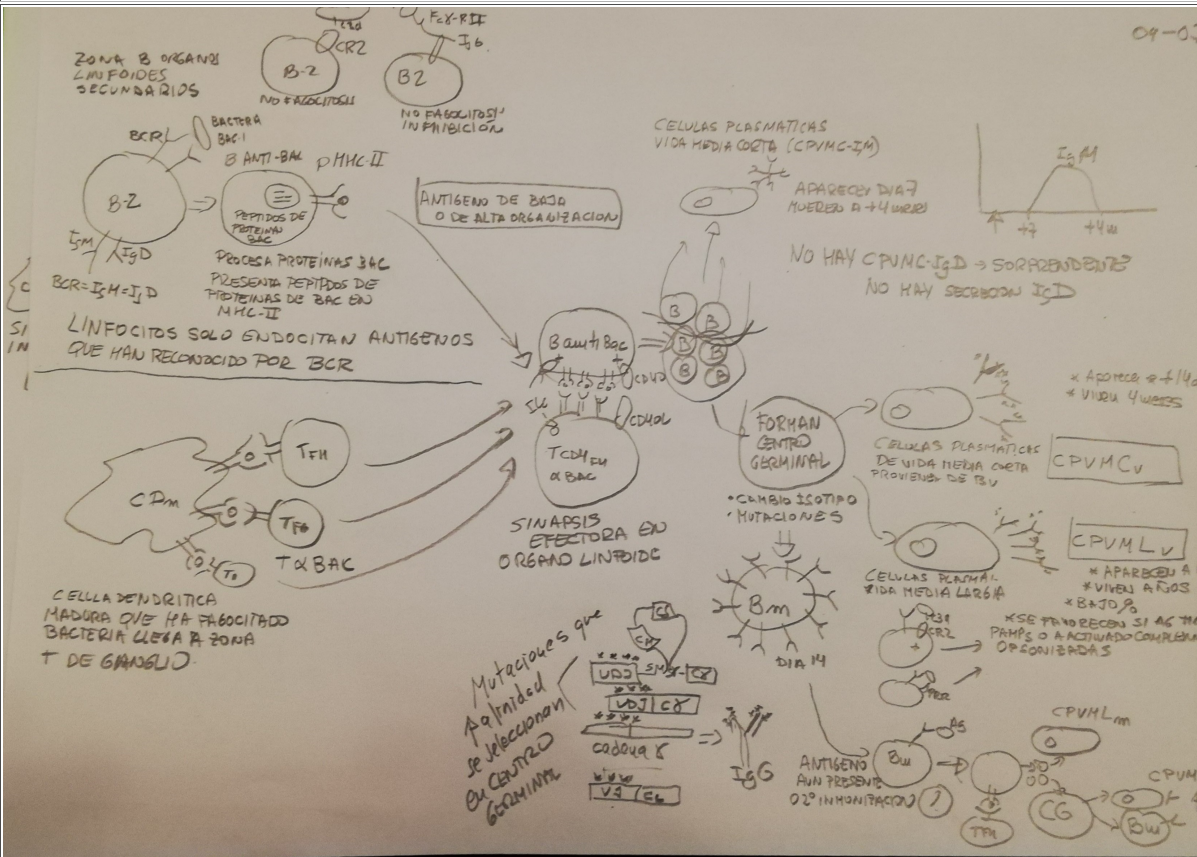 09-0
FcγRII
IgG
CR2
B-2
NO FAGOCITOSIS
B2
NO FAGOCITOSIS
INHIBICIÓN
ZONA B ORGANOS
LINFOIDES
SECUNDARIOS
BCR
BACTERIA
BAC
B ANTI-BAC
pMHC-II
B-2
PEPTIDOS DE
PROTEINAS
BAC
IgM
IgD
BCR=IgM=IgD
PROCESA PROTEÍNAS BAC
PRESENTA PEPTIDOS DE
PROTEINAS DE BAC EN
MHC-II
LINFOCITOS SOLO ENDOCITAN ANTIGENOS
QUE HAN RECONOCIDO POR BCR
ANTIGENO DE BAJA
O DE ALTA ORGANIZACION
CELULAS PLASMATICAS
VIDA MEDIA CORTA (CPVMC-IgM)
APARECEN DIA 7
MUEREN A +4 weeks
IgM
+7
+4w
NO HAY CPVMC-IgD → SORPRENDENTE
NO HAY SECRECION IgD
B anti Bac
CD40
CD40L
TCD4FH
α BAC
SINAPSIS
EFECTORA EN
ORGANO LINFOIDE
B
B
B
B
B
B
FORMAN
CENTRO
GERMINAL
• CAMBIO ISOTIPO
• MUTACIONES
* Aparece a +14
* VIVEN 4 weeks
CELULAS PLASMATICAS
DE VIDA MEDIA CORTA
PROVIENEN DE Bv
CPVMCv
CPVMLv
CELULAS PLASMA.
VIDA MEDIA LARGA
* APARECEN A
* VIVEN AÑOS
* BAJO %
* SE FAVORECEN SI AG
PAMPS O A ACTIVADO COMPLEM
OPSONIZADAS
CR2
+
PRR
CDm
TFH
TFH
T
T α BAC
CELULA DENDRITICA
MADURA QUE HA FAGOCITADO
BACTERIA LLEGA A ZONA
T DE GANGLIO.
Bm
DIA 14
Mutaciones que
↑ afinidad
se seleccionan
en CENTRO
GERMINAL
Cδ
Cμ
VDJ
Cγ
VDJ Cγ
cadena γ
IgG
VJ
ANTIGENO
AUN PRESENTE
O 2º INMUNIZACION
Bm
Ag
TFH
CPVMLm
CG
CPVM
Bm